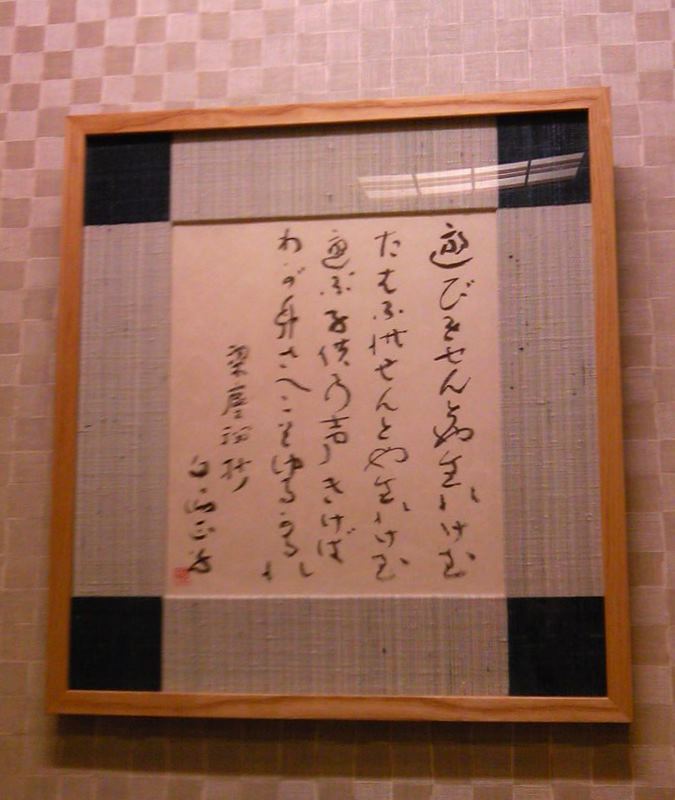 遊びをせんとや生れけむ
たはふれせんとや生れけむ
遊ぶ子供の声きけば
わが身さへこそゆるがるれ
梁塵秘抄